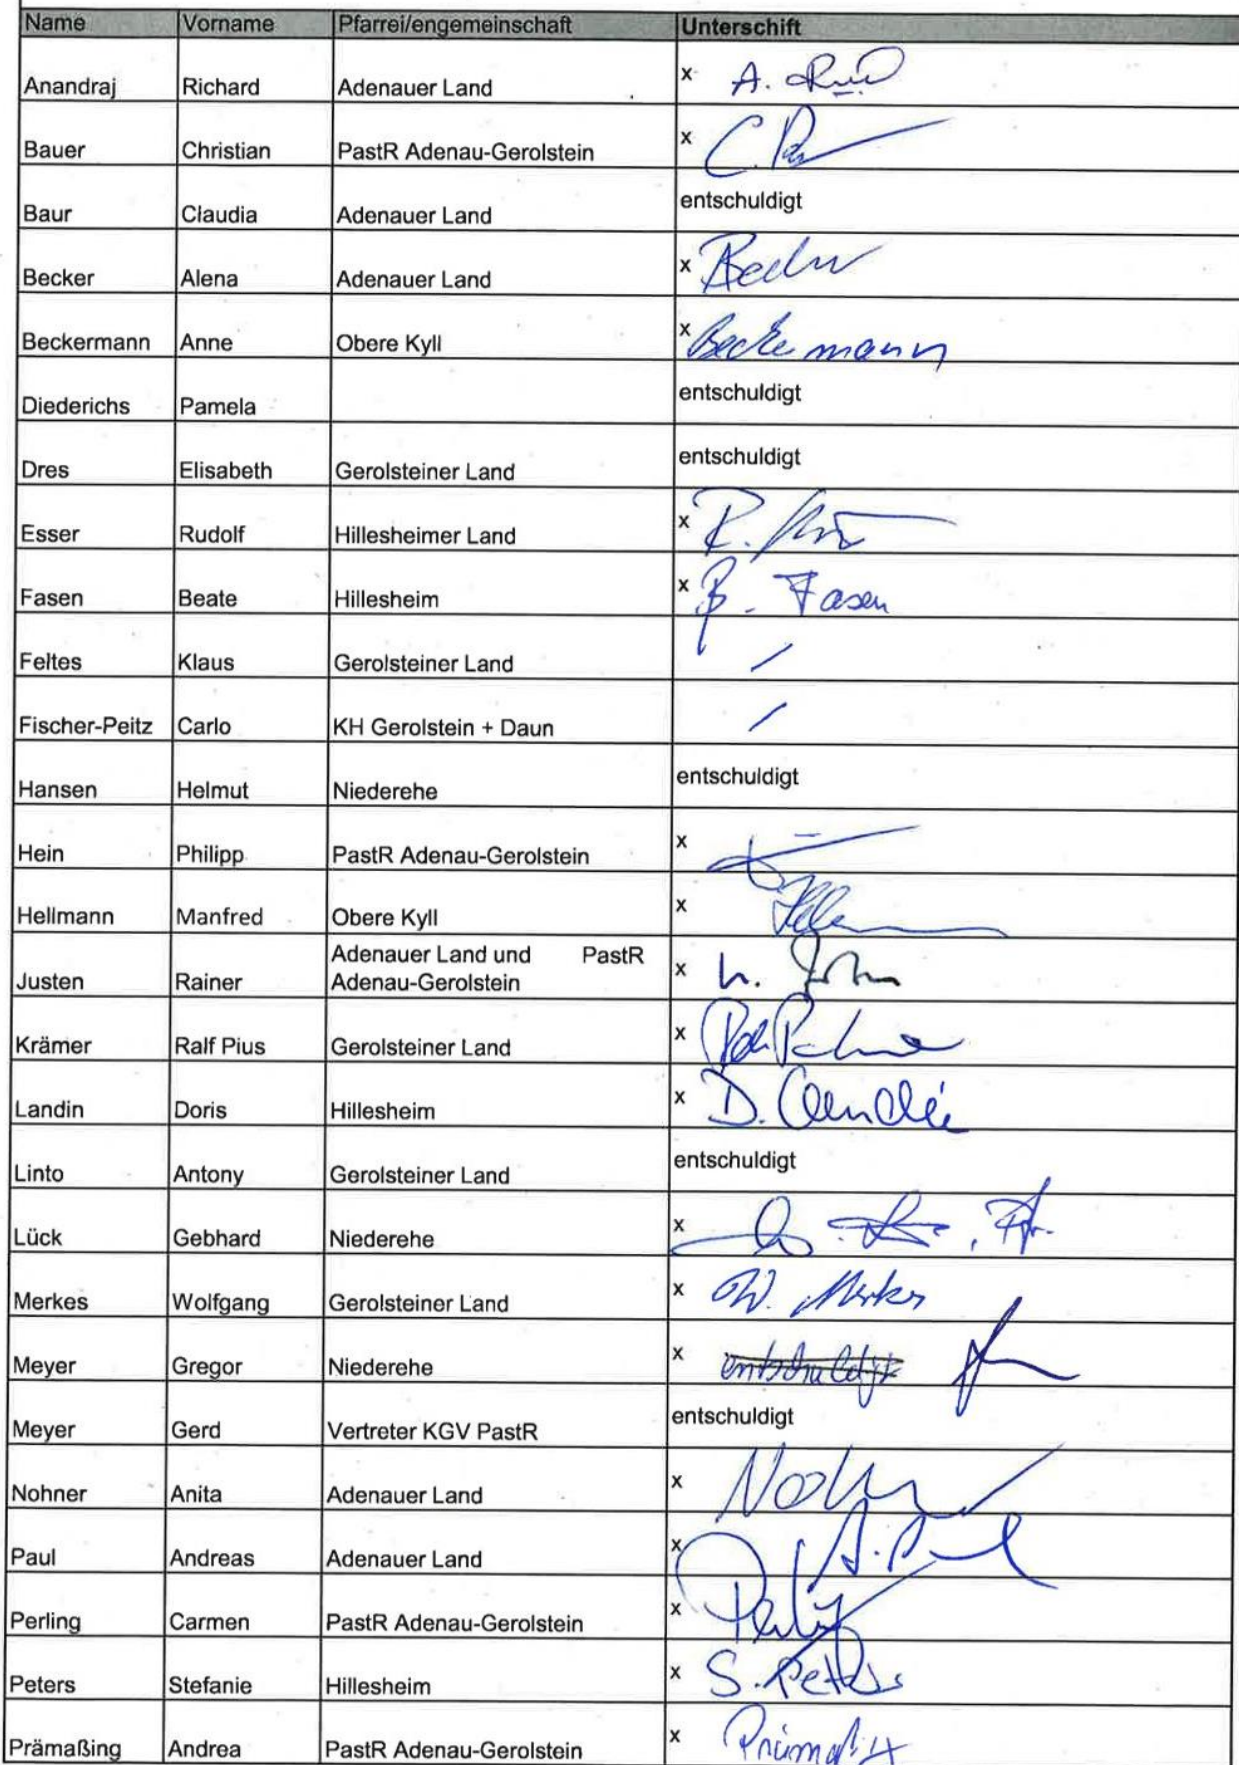 Name Vorname Pfarrei/engemeinschaft Unterschift
Anandraj Richard Adenauer Land x A.
Bauer Christian PastR Adenau-Gerolstein x C.
Baur Claudia Adenauer Land entschuldigt
Becker Alena Adenauer Land x
Beckermann Anne Obere Kyll x Beckermann
Diederichs Pamela entschuldigt
Dres Elisabeth Gerolsteiner Land entschuldigt
Esser Rudolf Hillesheimer Land x R.
Fasen Beate Hillesheim x B. Fasen
Feltes Klaus Gerolsteiner Land /
Fischer-Peitz Carlo KH Gerolstein + Daun /
Hansen Helmut Niederehe entschuldigt
Hein Philipp PastR Adenau-Gerolstein x
Hellmann Manfred Obere Kyll x
Justen Rainer Adenauer Land und PastR
Adenau-Gerolstein x
Krämer Ralf Pius Gerolsteiner Land x
Landin Doris Hillesheim x D.
Linto Antony Gerolsteiner Land entschuldigt
Lück Gebhard Niederehe x
Merkes Wolfgang Gerolsteiner Land x W. Merkes
Meyer Gregor Niederehe x entschuldigt
Meyer Gerd Vertreter KGV PastR entschuldigt
Nohner Anita Adenauer Land x
Paul Andreas Adenauer Land x A. Paul
Perling Carmen PastR Adenau-Gerolstein x
Peters Stefanie Hillesheim x S. Peters
Prämaßing Andrea PastR Adenau-Gerolstein x